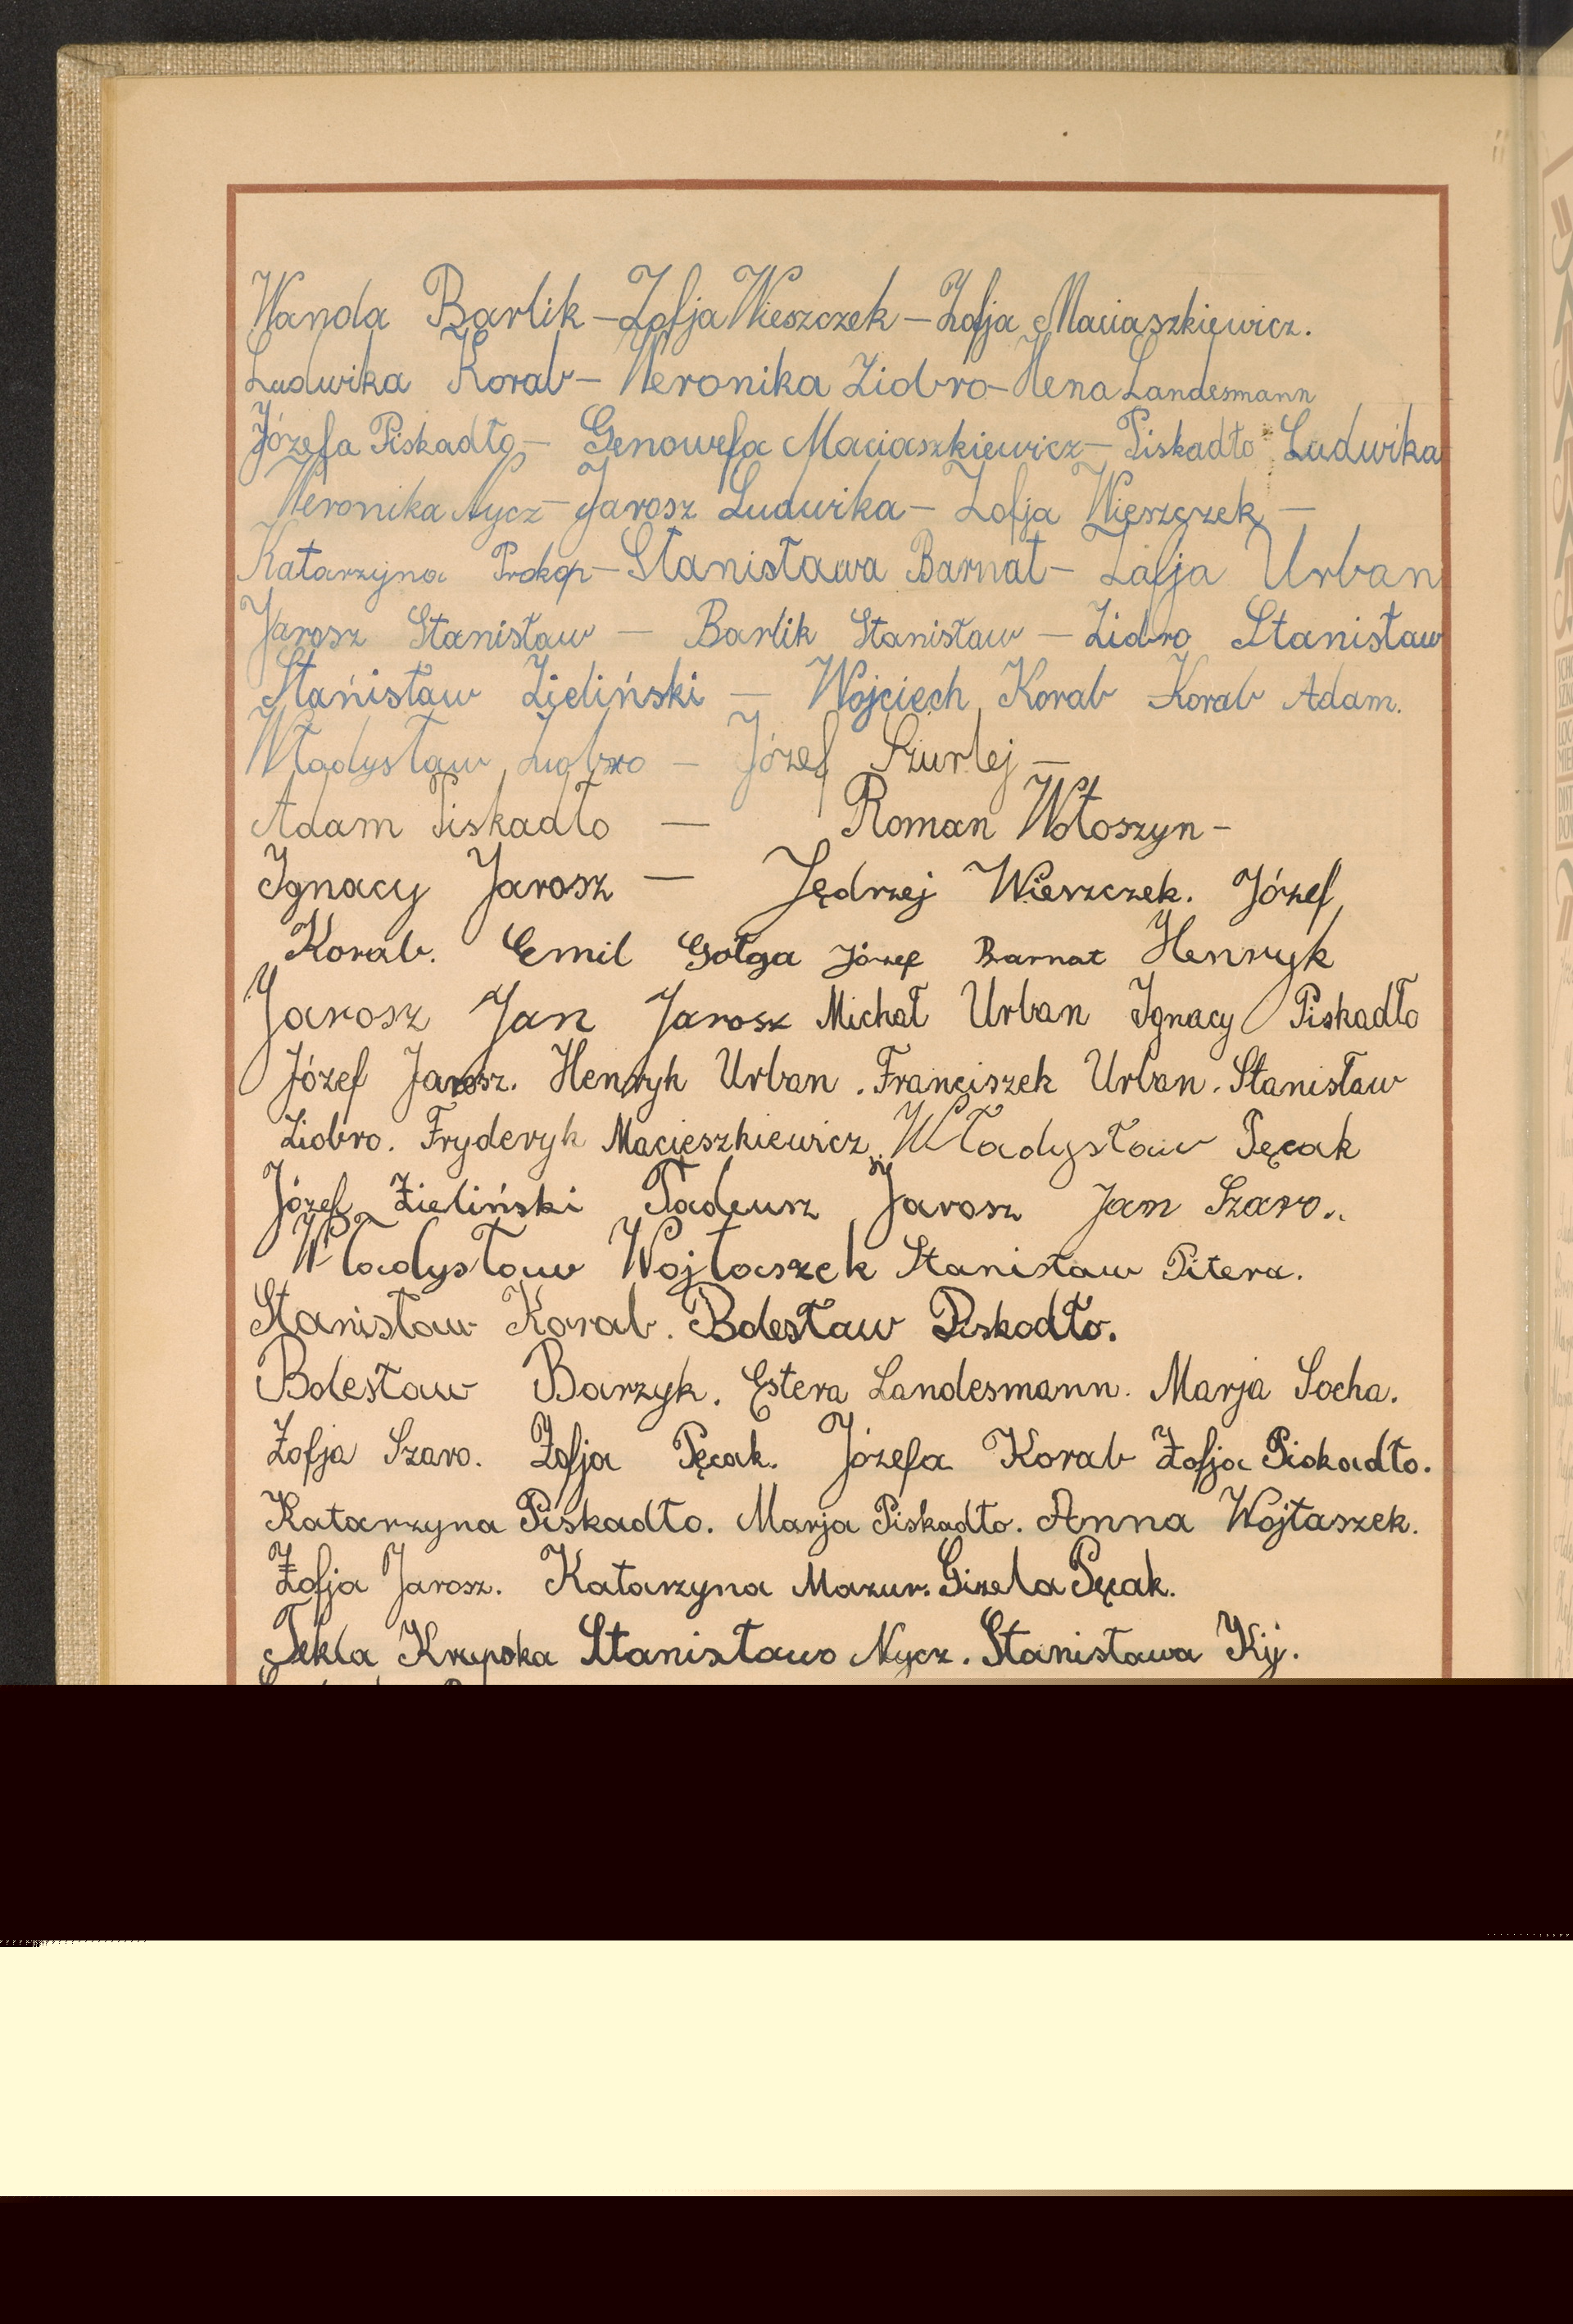 Wanda Barlik - Zofja Wieszczek - Zofja Maciaszkiewicz.
Ludwika Korab - Weronika Ziobro - Hena Landesmann
Józefa Piskadło - Genowefa Maciaszkiewicz - Piskadło Ludwika
Weronika Nycz - Jarosz Ludwika - Zofja Wieszczek -
Katarzyna Prokop - Stanisława Barnat - Zofja Urban
Jarosz Stanisław - Barlik Stanisław - Ziobro Stanisław
Stanisław Zieliński - Wojciech Korab - Korab Adam.
Władysław Ziobro - Józef Szurlej -
Adam Piskadło - Roman Wołoszyn -
Ignacy Jarosz - Jędrzej Wieszczek. Józef
Korab. Emil Gołga Józef Barnat Henryk
Jarosz Jan Jarosz Michał Urban Ignacy Piskadło
Józef Jarosz. Henryk Urban. Franciszek Urban. Stanisław
Ziobro. Fryderyk Macieszkiewicz. Władysław Pęcak
Józef Zieliński Tadeusz Jarosz Jan Szaro..
Władysław Wojtaszek Stanisław Pitera.
Stanisław Korab. Bolesław Piskadło.
Bolesław Barzyk. Estera Landesmann. Marja Socha.
Zofja Szaro. Zofja Pęcak. Józefa Korab Zofja Piskadło.
Katarzyna Piskadło. Marja Piskadło. Anna Wojtaszek.
Zofja Jarosz. Katarzyna Mazur. Gizela Pęcak.
Tekla Krępska Stanisława Nycz. Stanisława Kij.